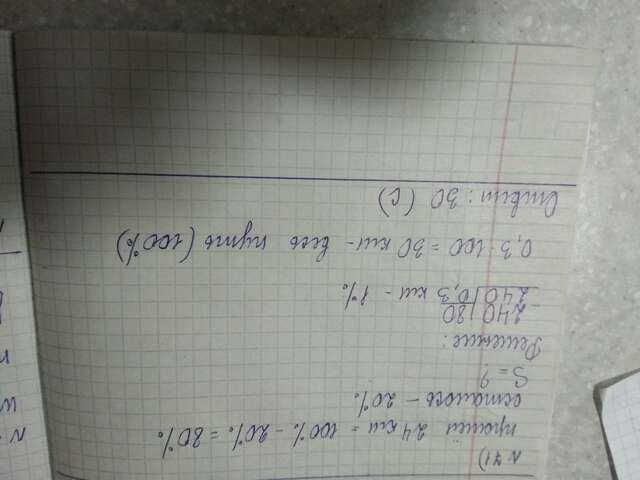 N 71)
прошли 24 км = 100% - 20% = 80%
осталось - 20%
S = ?
Решение:
240 | 80
240 | 0,3 км - 1%
0,3 · 100 = 30 км - весь путь (100%)
Ответ: 30 (С)